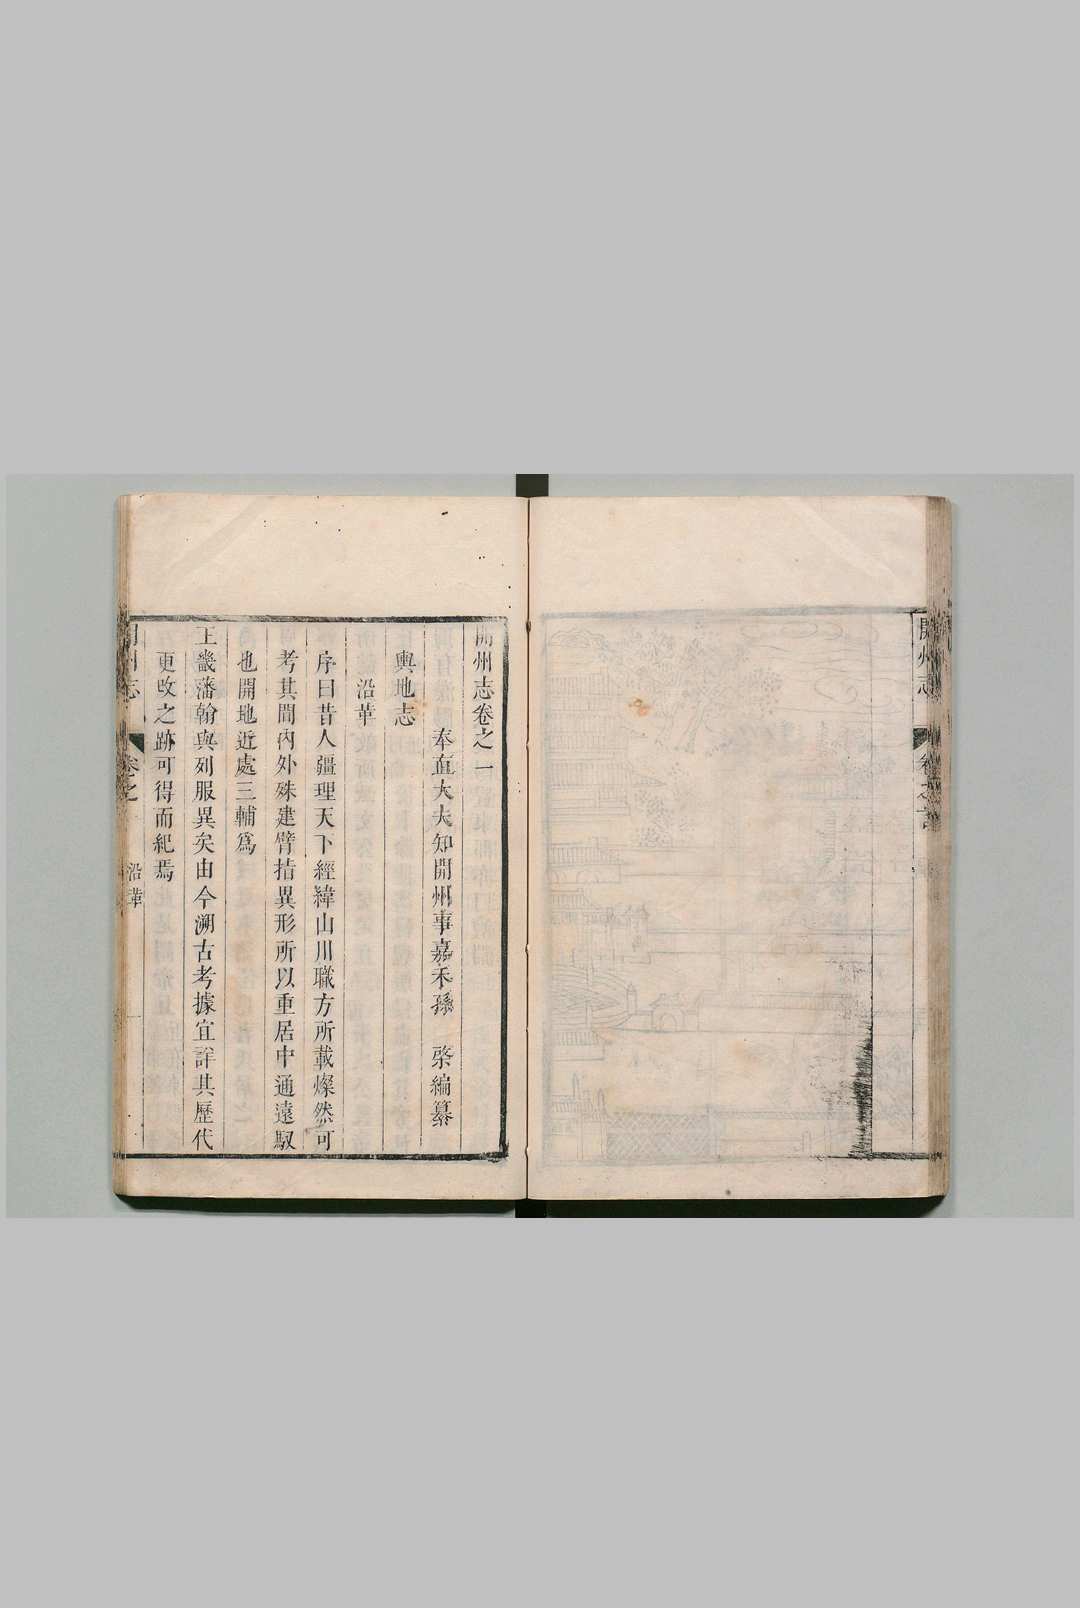 開州志
開州志卷之一
奉直大夫知開州事嘉禾孫 棨編纂
輿地志
沿革
序曰昔人疆理天下經緯山川職方所載燦然可
考其間內外殊建臂指異形所以重居中通遠馭
也開地近處三輔爲
王畿藩翰與列服異矣由今溯古考據宜詳其歷代
更改之跡可得而紀焉
開州志 卷之一 沿革